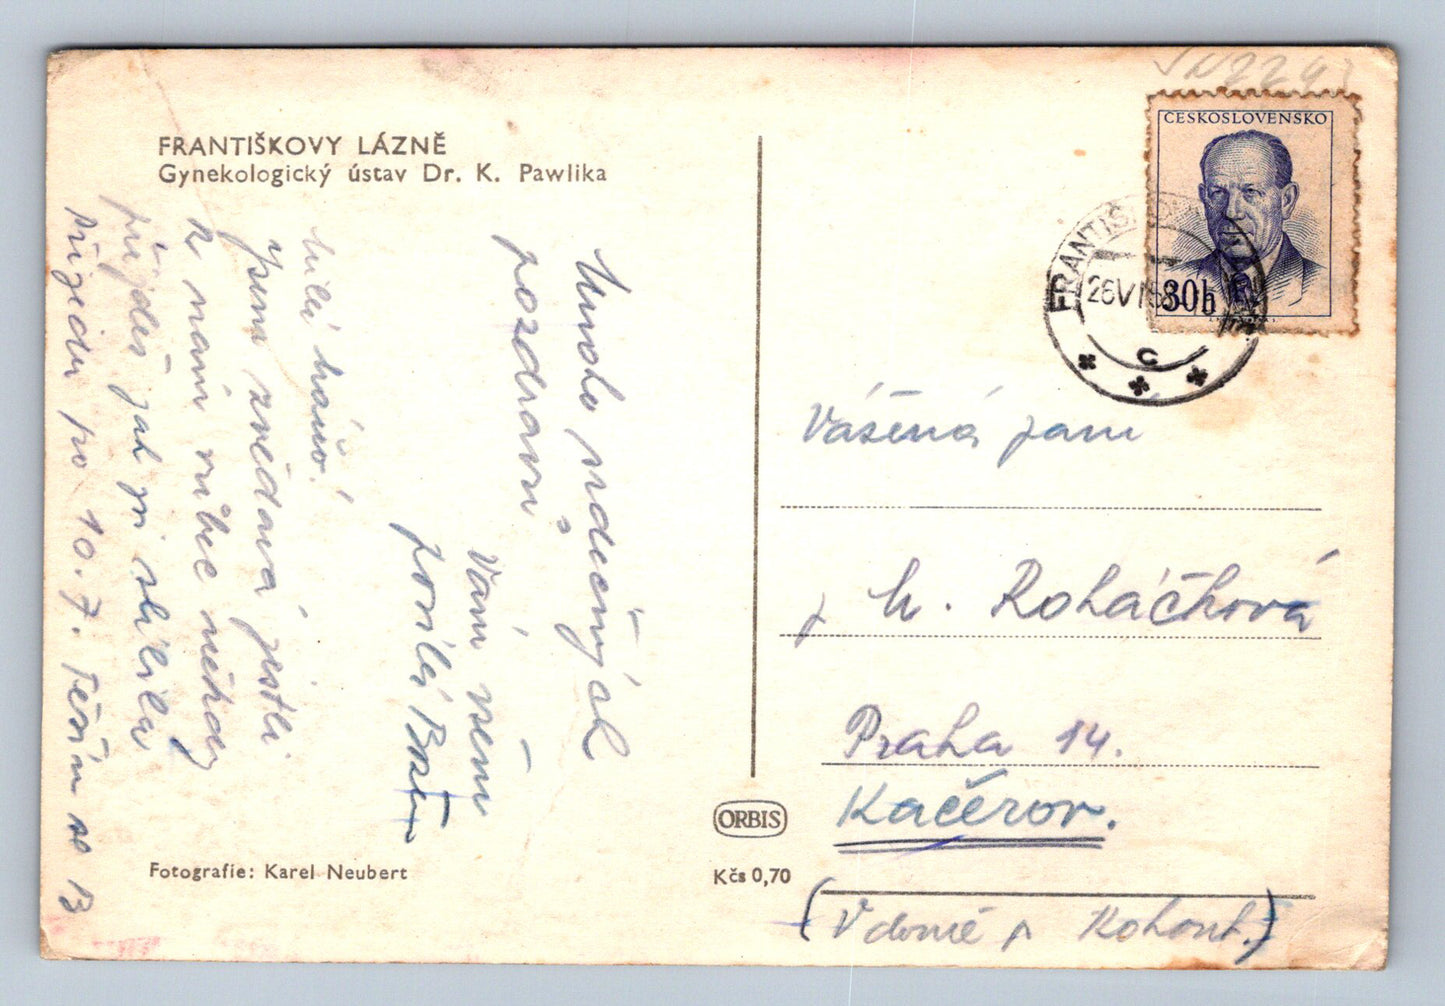 FRANTIŠKOVY LÁZNĚ
Gynekologický ústav Dr. K. Pawlika
Mnoho srdečných
pozdravů
Vám všem
posílá
Milá
Jsem zvědava jestli
k nám vůbec někdy
přijdeš jak jsi slíbila
přijedu po 10.7. Těším se B
Fotografie: Karel Neubert
ORBIS
Kčs 0,70
ČESKOSLOVENSKO
30h
FRANTIŠKOVY
26 VI
C
Vážená paní
M. Roháčková
Praha 14.
Kačerov.
(V domě p Kohout.)